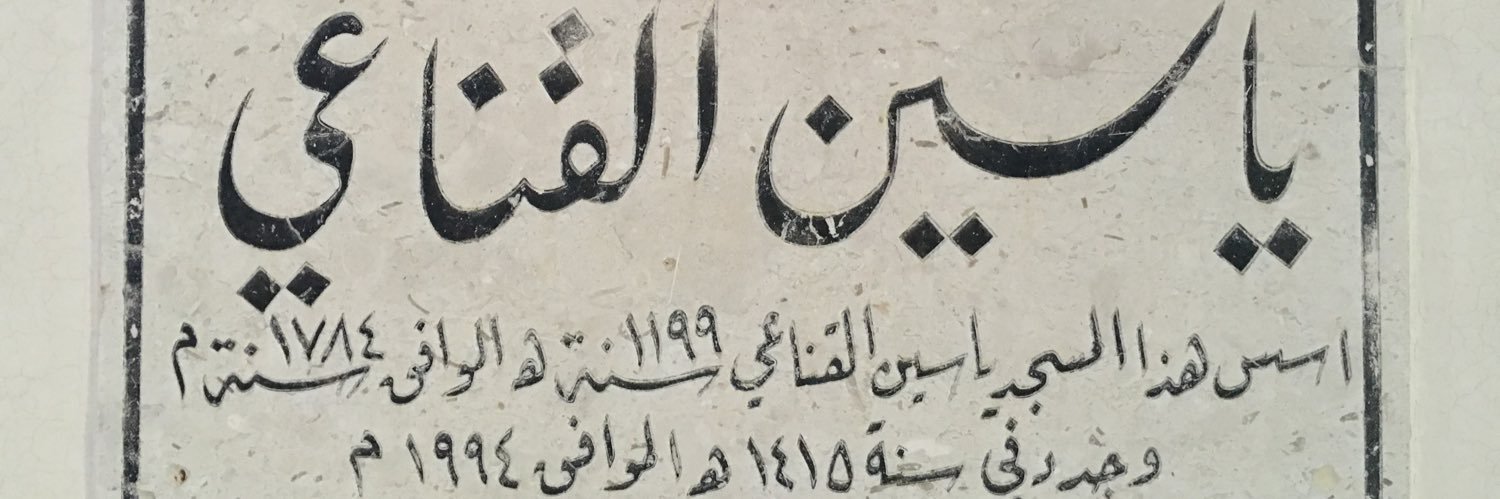 ياسين القناعي
اسس هذا المسجد ياسين القناعي سنة ١١٩٩ ه الموافق سنة ١٧٨٤ م
وجدد في سنة ١٤١٥ ه الموافق ١٩٩٤ م